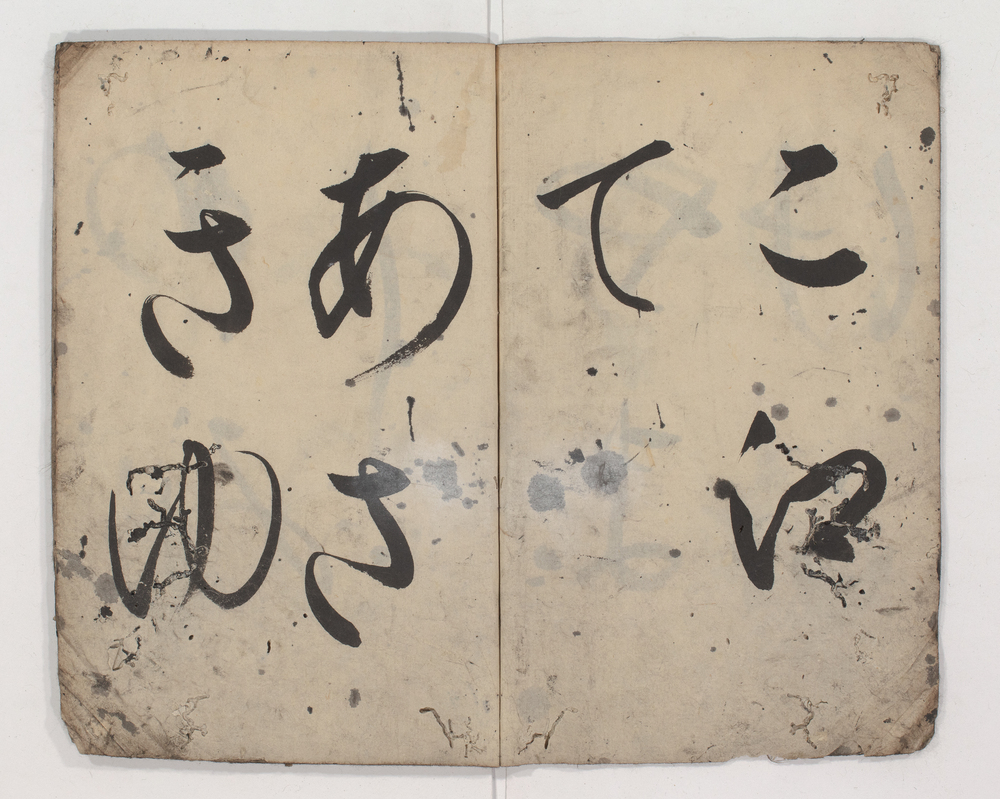 こ江
て
あさ
きゆ